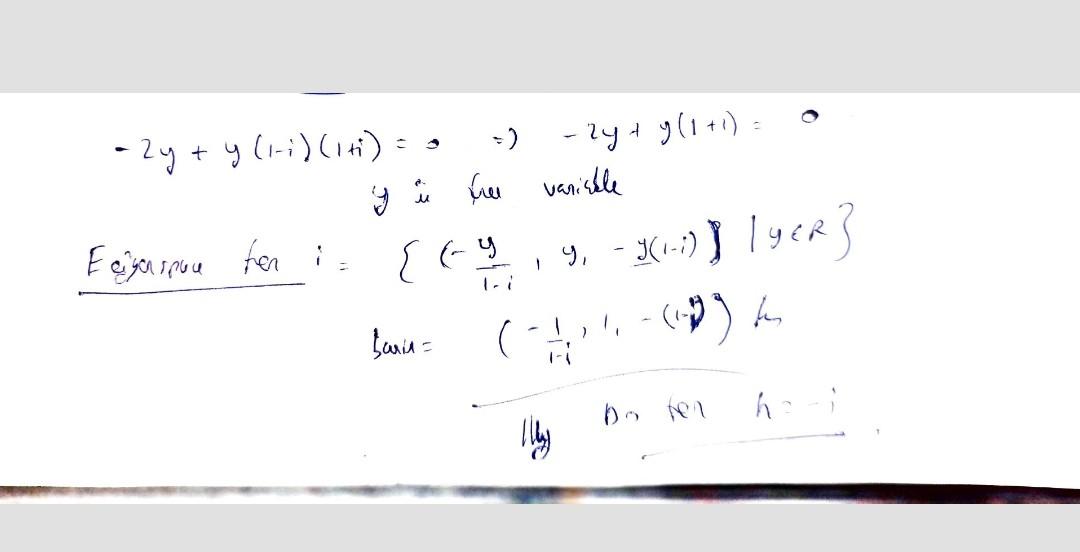 -2y + y (1-i)(1+i) = 0 => -2y + y(1+1) = 0
y is free variable
Eigenspace for i = { (- y/1-i , y, - y(1-i) ) | y ∈ R }
basis = ( - 1/1-i , 1, - (1-i) )
|||ly Do for λ = -i